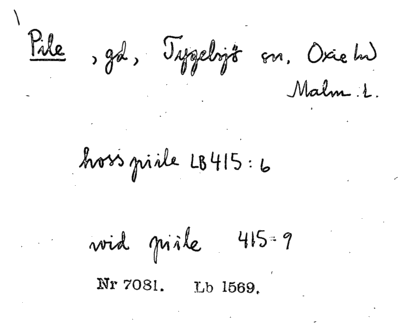 Pile, gd, Tygelsjö sn, Oxie hd
Malm. l.
hoss piile LB 415:6
wid piile 415:9
Nr 7081. Lb 1569.